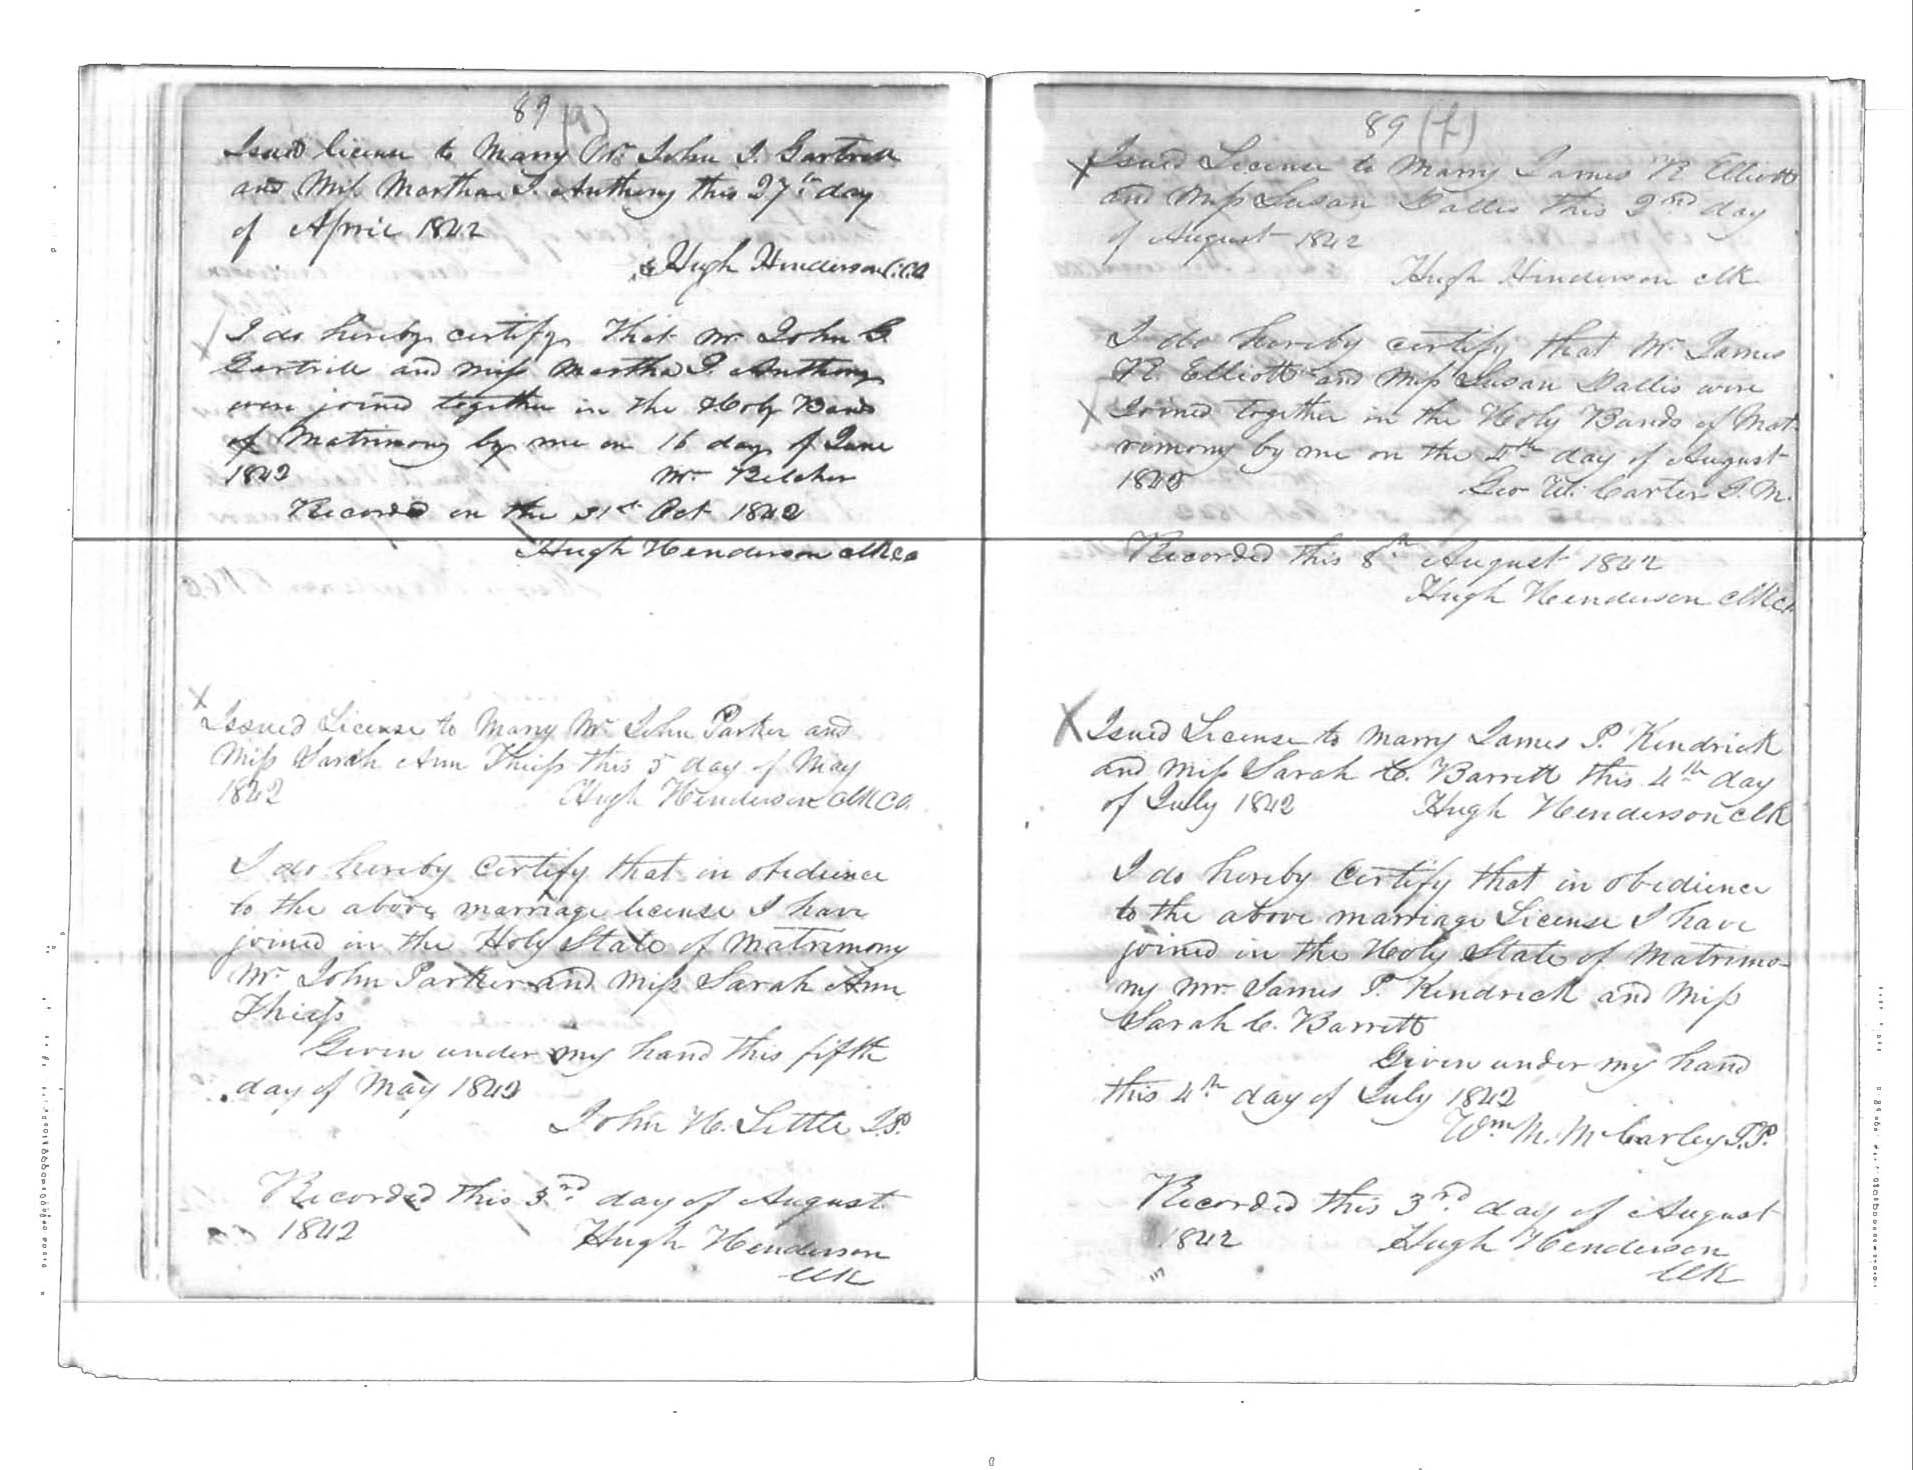 89 (a)
Issued license to Marry Mr John J. Gartrell
and Miss Martha J. Anthony this 27th day
of April 1842
Hugh Henderson C.C.O
I do hereby certify That Mr John G
Gartrell and miss Martha J. Anthony
were joined together in the Holy Bands
of Matrimony by me on 16 day of June
1842 Mr Belcher
Recorded on the 31st Oct 1842
Hugh Henderson Clk Co
Issued License to Marry Mr John Parker and
Miss Sarah Ann Thiess this 5 day of May
1842 Hugh Henderson Clk CO.
I do hereby Certify that in obedience
to the above marriage license I have
joined in the Holy State of Matrimony
Mr John Parker and Miss Sarah Ann
Thiess
Given under my hand this fifth
day of May 1842
John H. Little J.P.
Recorded this 3rd day of August
1842 Hugh Henderson
Clk
89
X Issued License to Marry James R Elliott
and Miss Susan Dallis this 2nd day
of August 1842
Hugh Henderson Clk
I do hereby certify that Mr James
R. Elliott and Miss Susan Dallis were
Joined together in the Holy Bands of Mat-
rimony by me on the day of August
1842 Geo W. Carter J. M.
Recorded this 8th August 1842
Hugh Henderson Clk Co.
X Issued License to marry James P. Kendrick
and Miss Sarah C. Barrett this 4th day
of July 1842 Hugh Henderson Clk
I do hereby Certify that in obedience
to the above marriage License I have
joined in the Holy State of Matrimo-
ny Mr. James P. Kendrick and Miss
Sarah C. Barrett
Given under my hand
this 4th day of July 1842
Wm M. McCarley J.P.
Recorded this 3rd day of August
1842 Hugh Henderson
Clk